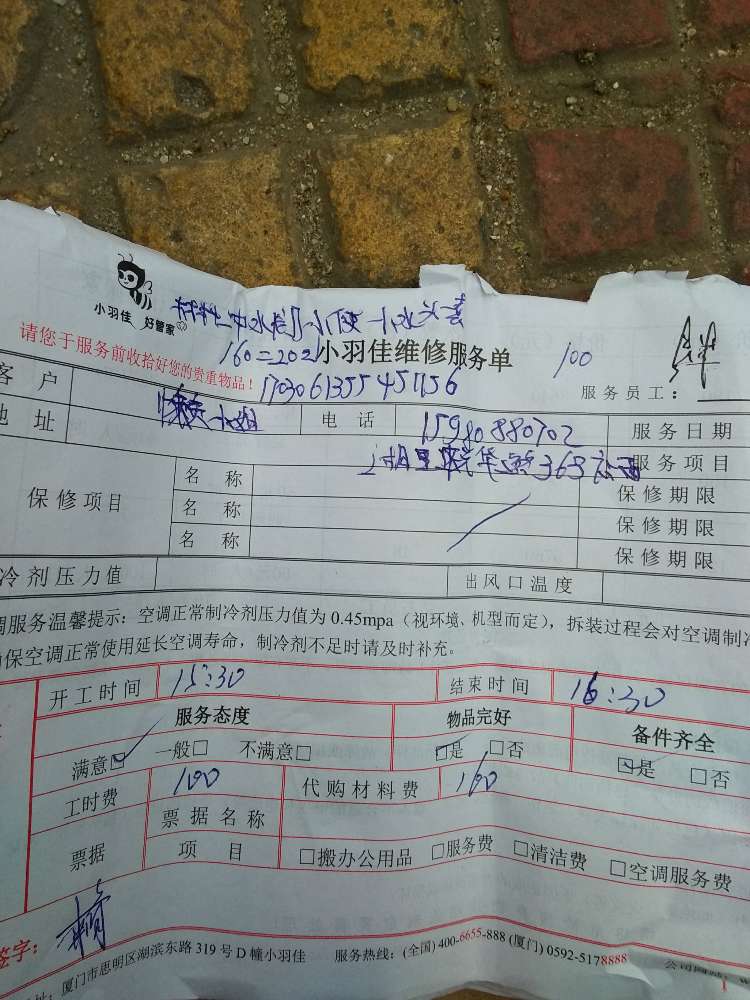 小羽佳 好管家
请您于服务前收拾好您的贵重物品！
小羽佳维修服务单
100
服务员工：
17030613554515
客户
小姐
电话
15980880702
服务日期
地址
服务项目
保修项目
名称
保修期限
名称
保修期限
名称
保修期限
冷剂压力值
出风口温度
调服务温馨提示：空调正常制冷剂压力值为 0.45mpa（视环境、机型而定），拆装过程会对空调制冷
保空调正常使用延长空调寿命，制冷剂不足时请及时补充。
开工时间
15:30
结束时间
16:30
服务态度
物品完好
备件齐全
满意☑ 一般□ 不满意□
☑是 □否
☑是 □否
工时费
100
代购材料费
160
票据
票据名称
项目
□搬办公用品 □服务费 □清洁费 □空调服务费
签字：
厦门市思明区湖滨东路 319 号 D 幢小羽佳 服务热线：(全国) 400-6655-888 (厦门) 0592-5178888